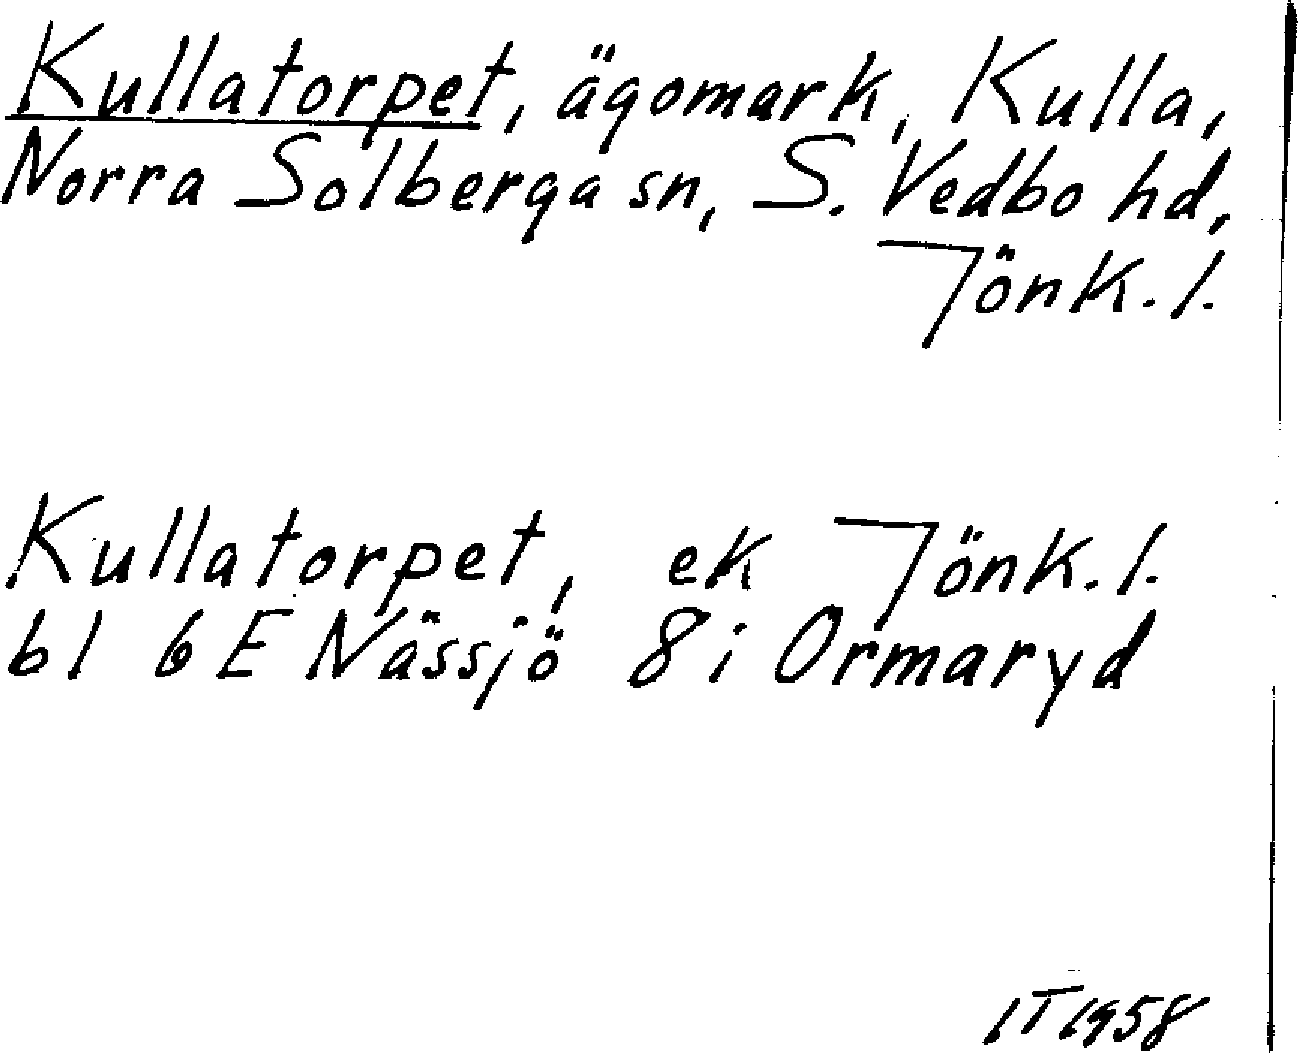 Kullatorpet, ägomark, Kulla,
Norra Solberga sn, S. Vedbo hd,
Jönk. l.
Kullatorpet, ek Jönk. l.
bl 6 E Nässjö 8 i Ormaryd
IT 1958